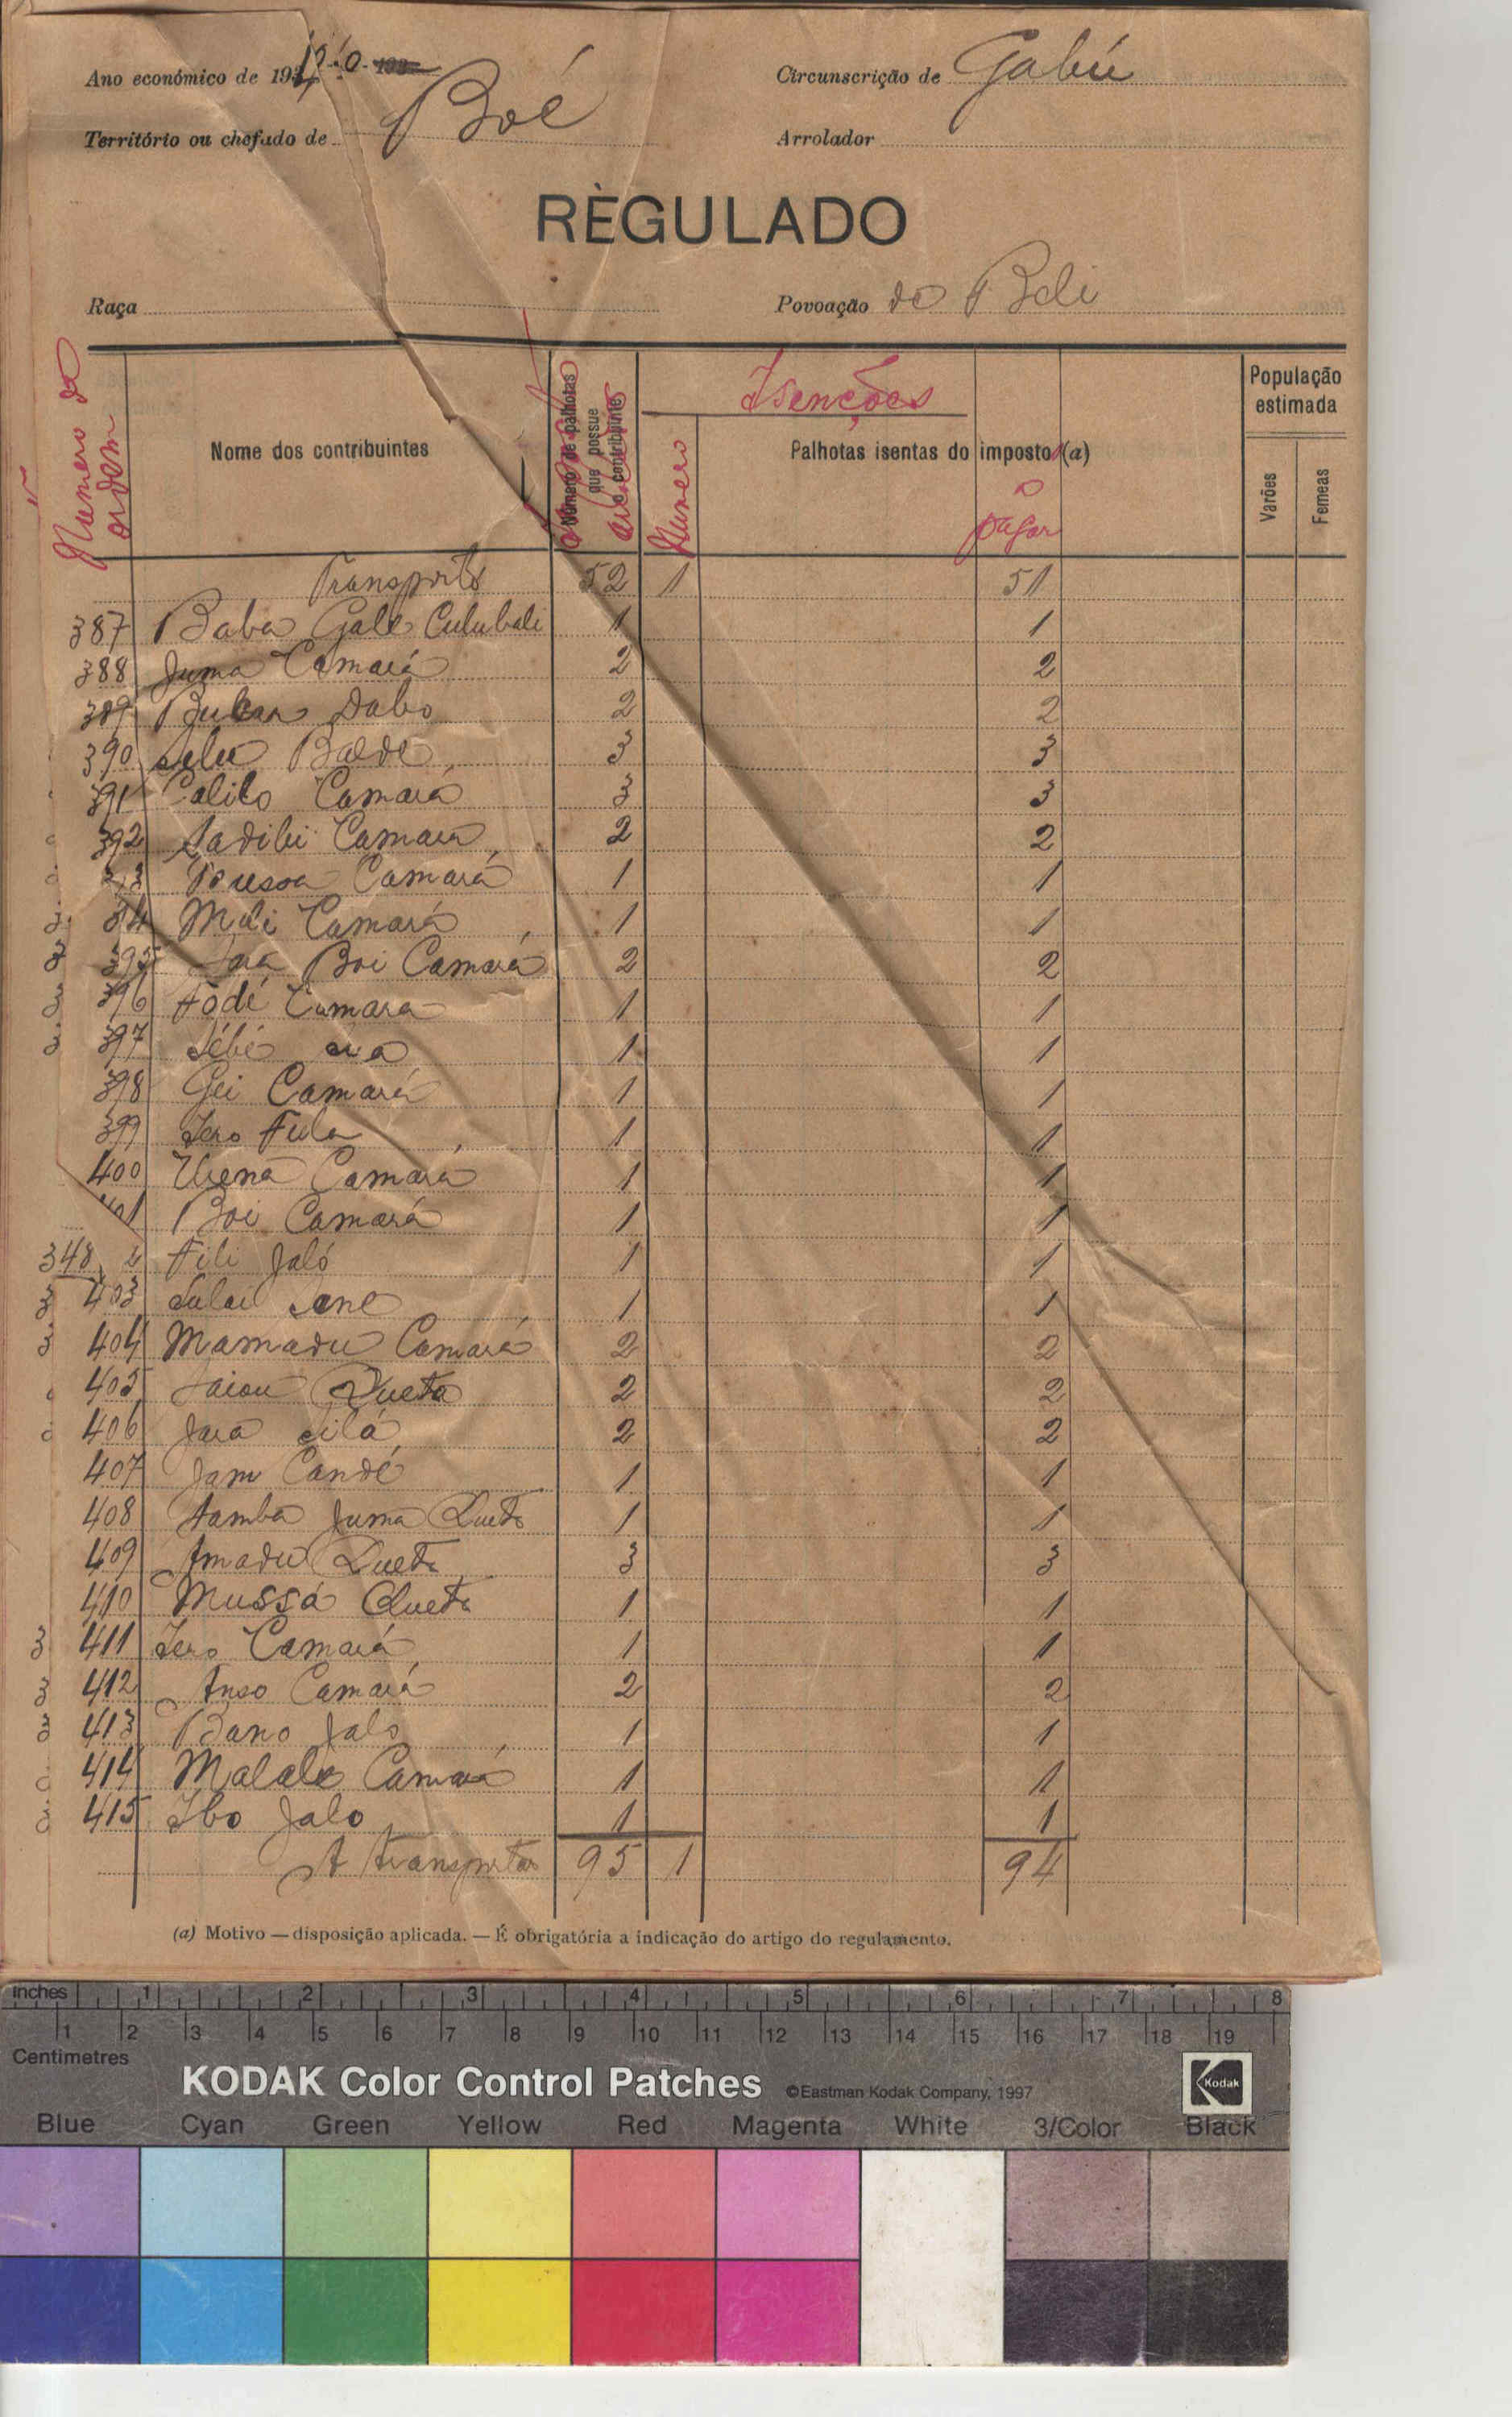 Ano económico de 1940-193
Circunscrição de Gabú
Território ou chefado de Boé
Arrolador
RÈGULADO
Raça
Povoação de Beli
Numero de ordem
Nome dos contribuintes
Número de palhotas que possue o contribuinte
Isenções
Numero
Palhotas isentas do imposto (a)
a pagar
População estimada
Varões
Femeas
Transporte 52 1 51
387 Baba Gale Culubali 1 1
388 Juma Camará 2 2
389 Bucar Dabo 2 2
390 Selu Balde 3 3
391 Calilo Camará 3 3
392 Sadibi Camara 2 2
Camará 1 1
Mali Camará 1 1
395 Boi Camará 2 2
396 Fodé Camara 1 1
397 1 1
398 Gei Camará 1 1
399 Iero Fula 1 1
400 Camará 1 1
401 Boi Camará 1 1
348 Fili Jaló 1 1
3 403 Sane 1 1
3 404 Mamadu Camará 2 2
405 Queta 2 2
406 Jara Silá 2 2
407 Jam Candé 1 1
408 Samba Juma Queta 1 1
409 Amadu Queta 3 3
410 Mussá Queta 1 1
3 411 Iero Camará 1 1
3 412 Anso Camará 2 2
3 413 Bano Jalo 1 1
414 Camará 1 1
415 Ibo Jalo 1 1
A transportar 95 1 94
(a) Motivo — disposição aplicada. — É obrigatória a indicação do artigo do regulamento.
inches 1 2 3 4 5 6 7 8
1 2 3 4 5 6 7 8 9 10 11 12 13 14 15 16 17 18 19
Centimetres
KODAK Color Control Patches ©Eastman Kodak Company, 1997 Kodak
Blue Cyan Green Yellow Red Magenta White 3/Color Black